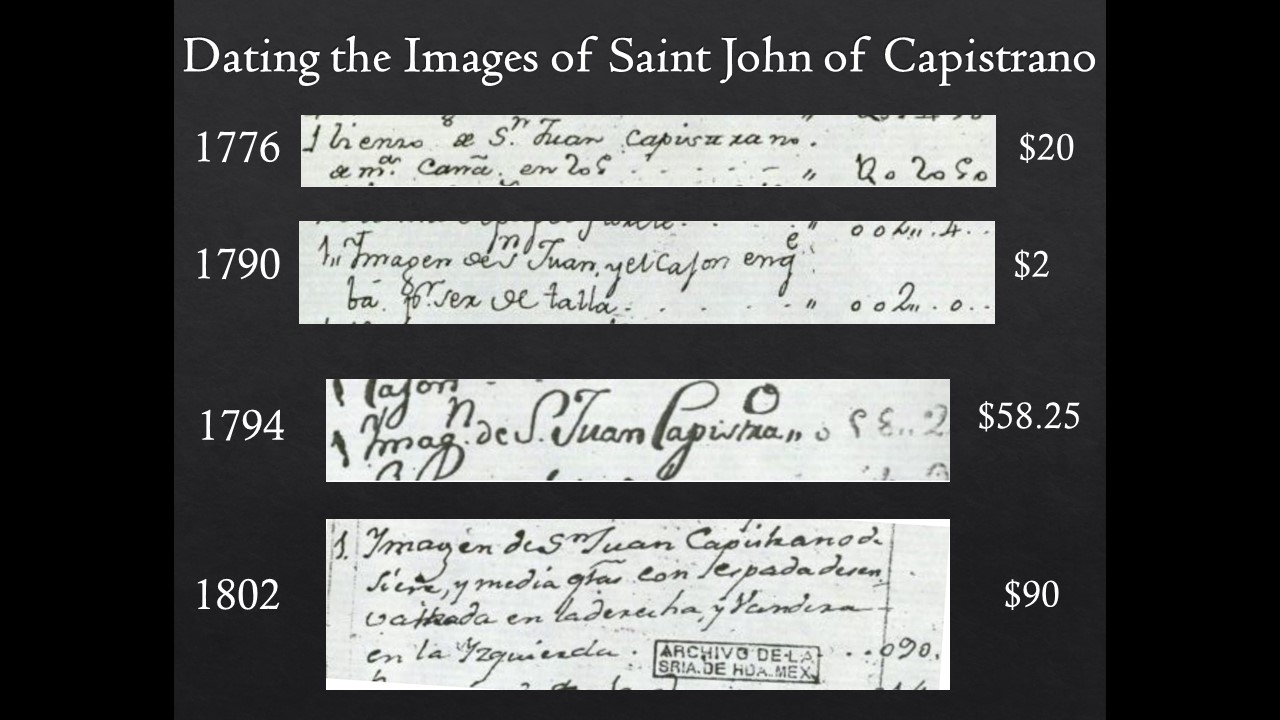 Dating the Images of Saint John of Capistrano
1776
1 lienzo de Sn. Juan Capistrano.
de mr. Camã. en 20$ . . . - - „
$20
1790
1„ Imagen de Sn Juan, y el Cajon enqe
ba. pr. ser de talla . . . . - „ 002„.0..
$2
1794
Cajon
1 Imagn. de S. Juan Capistrao„ 058„2
$58.25
1802
1. Imagen de Sn Juan Capistrano de
siete, y media qtas con espada desen
vainada en la derecha, y Vandera
en la Yzquierda . . . 090.
ARCHIVO DE LA
SRIA. DE HDA. MEX.
$90